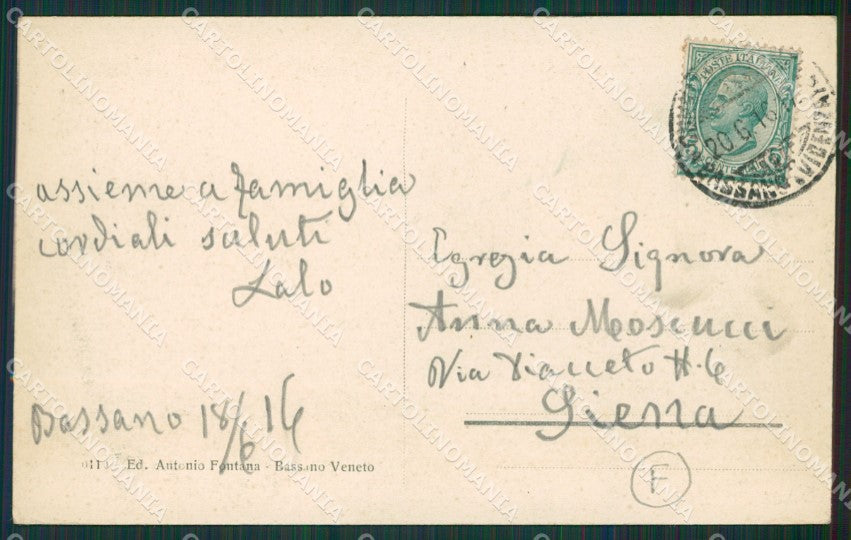 assieme a famiglia
cordiali saluti
Lalo
Bassano 18/6 16
Ed. Antonio Fontana - Bassano Veneto
POSTE ITALIANE
20.6.16
BASSANO (VICENZA)
Egregia Signora
Anna Moscucci
Via
Siena
F
CARTOLINOMANIA